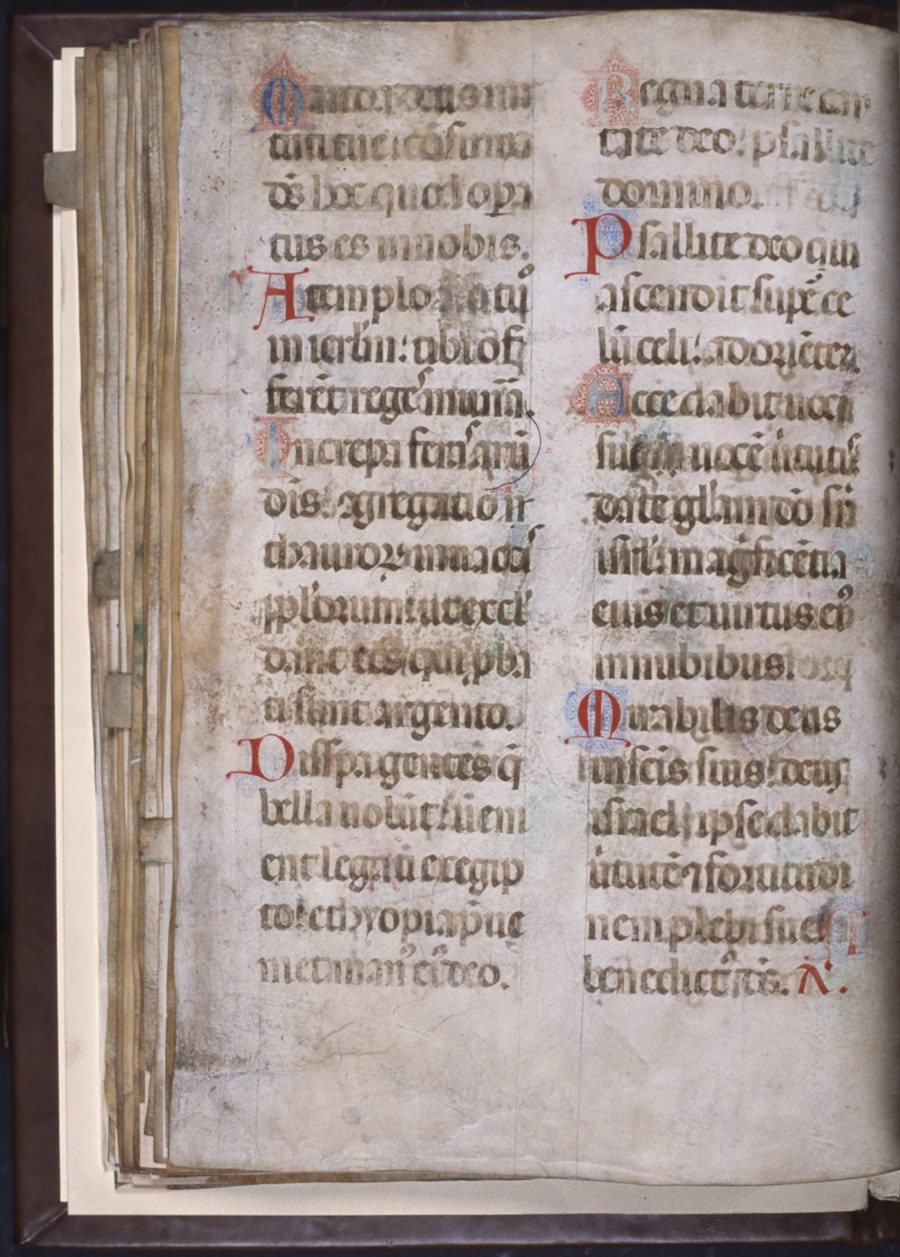 Manda deus uir
tuti tue: cōfirma
ds̄ hoc quod opa
tus es in nobis.
A templo tuū
in ierlm̄: tibi of
ferēt reges munā.
Increpa feras arū
dis: agregatio
thauroꝝ in uacc̄
pplorum: ut excl
dant eos qui ꝓba
ti sunt argento.
Dissipa gentes q̄
bella uolūt: ueni
ent legati ex egip
to: ethyopia pue
niet man᷒ ei᷒ deo.
Regna terre can
tate deo: psallite
domino.
Psallite deo qui
ascendit supē ce
lū celi: ad oriēteꝫ
Ecce dabit uoci
sue uocē ūtutis
date glam dō sup
isrl̄: magficētia
eius et uirtus ei᷒
in nubibus.
Mirabilis deus
in scīs suis: deus
israel ipse dabit
ūtutē ⁊ fortitudi
nem plebi sue
benedict᷒ ds̄. A.